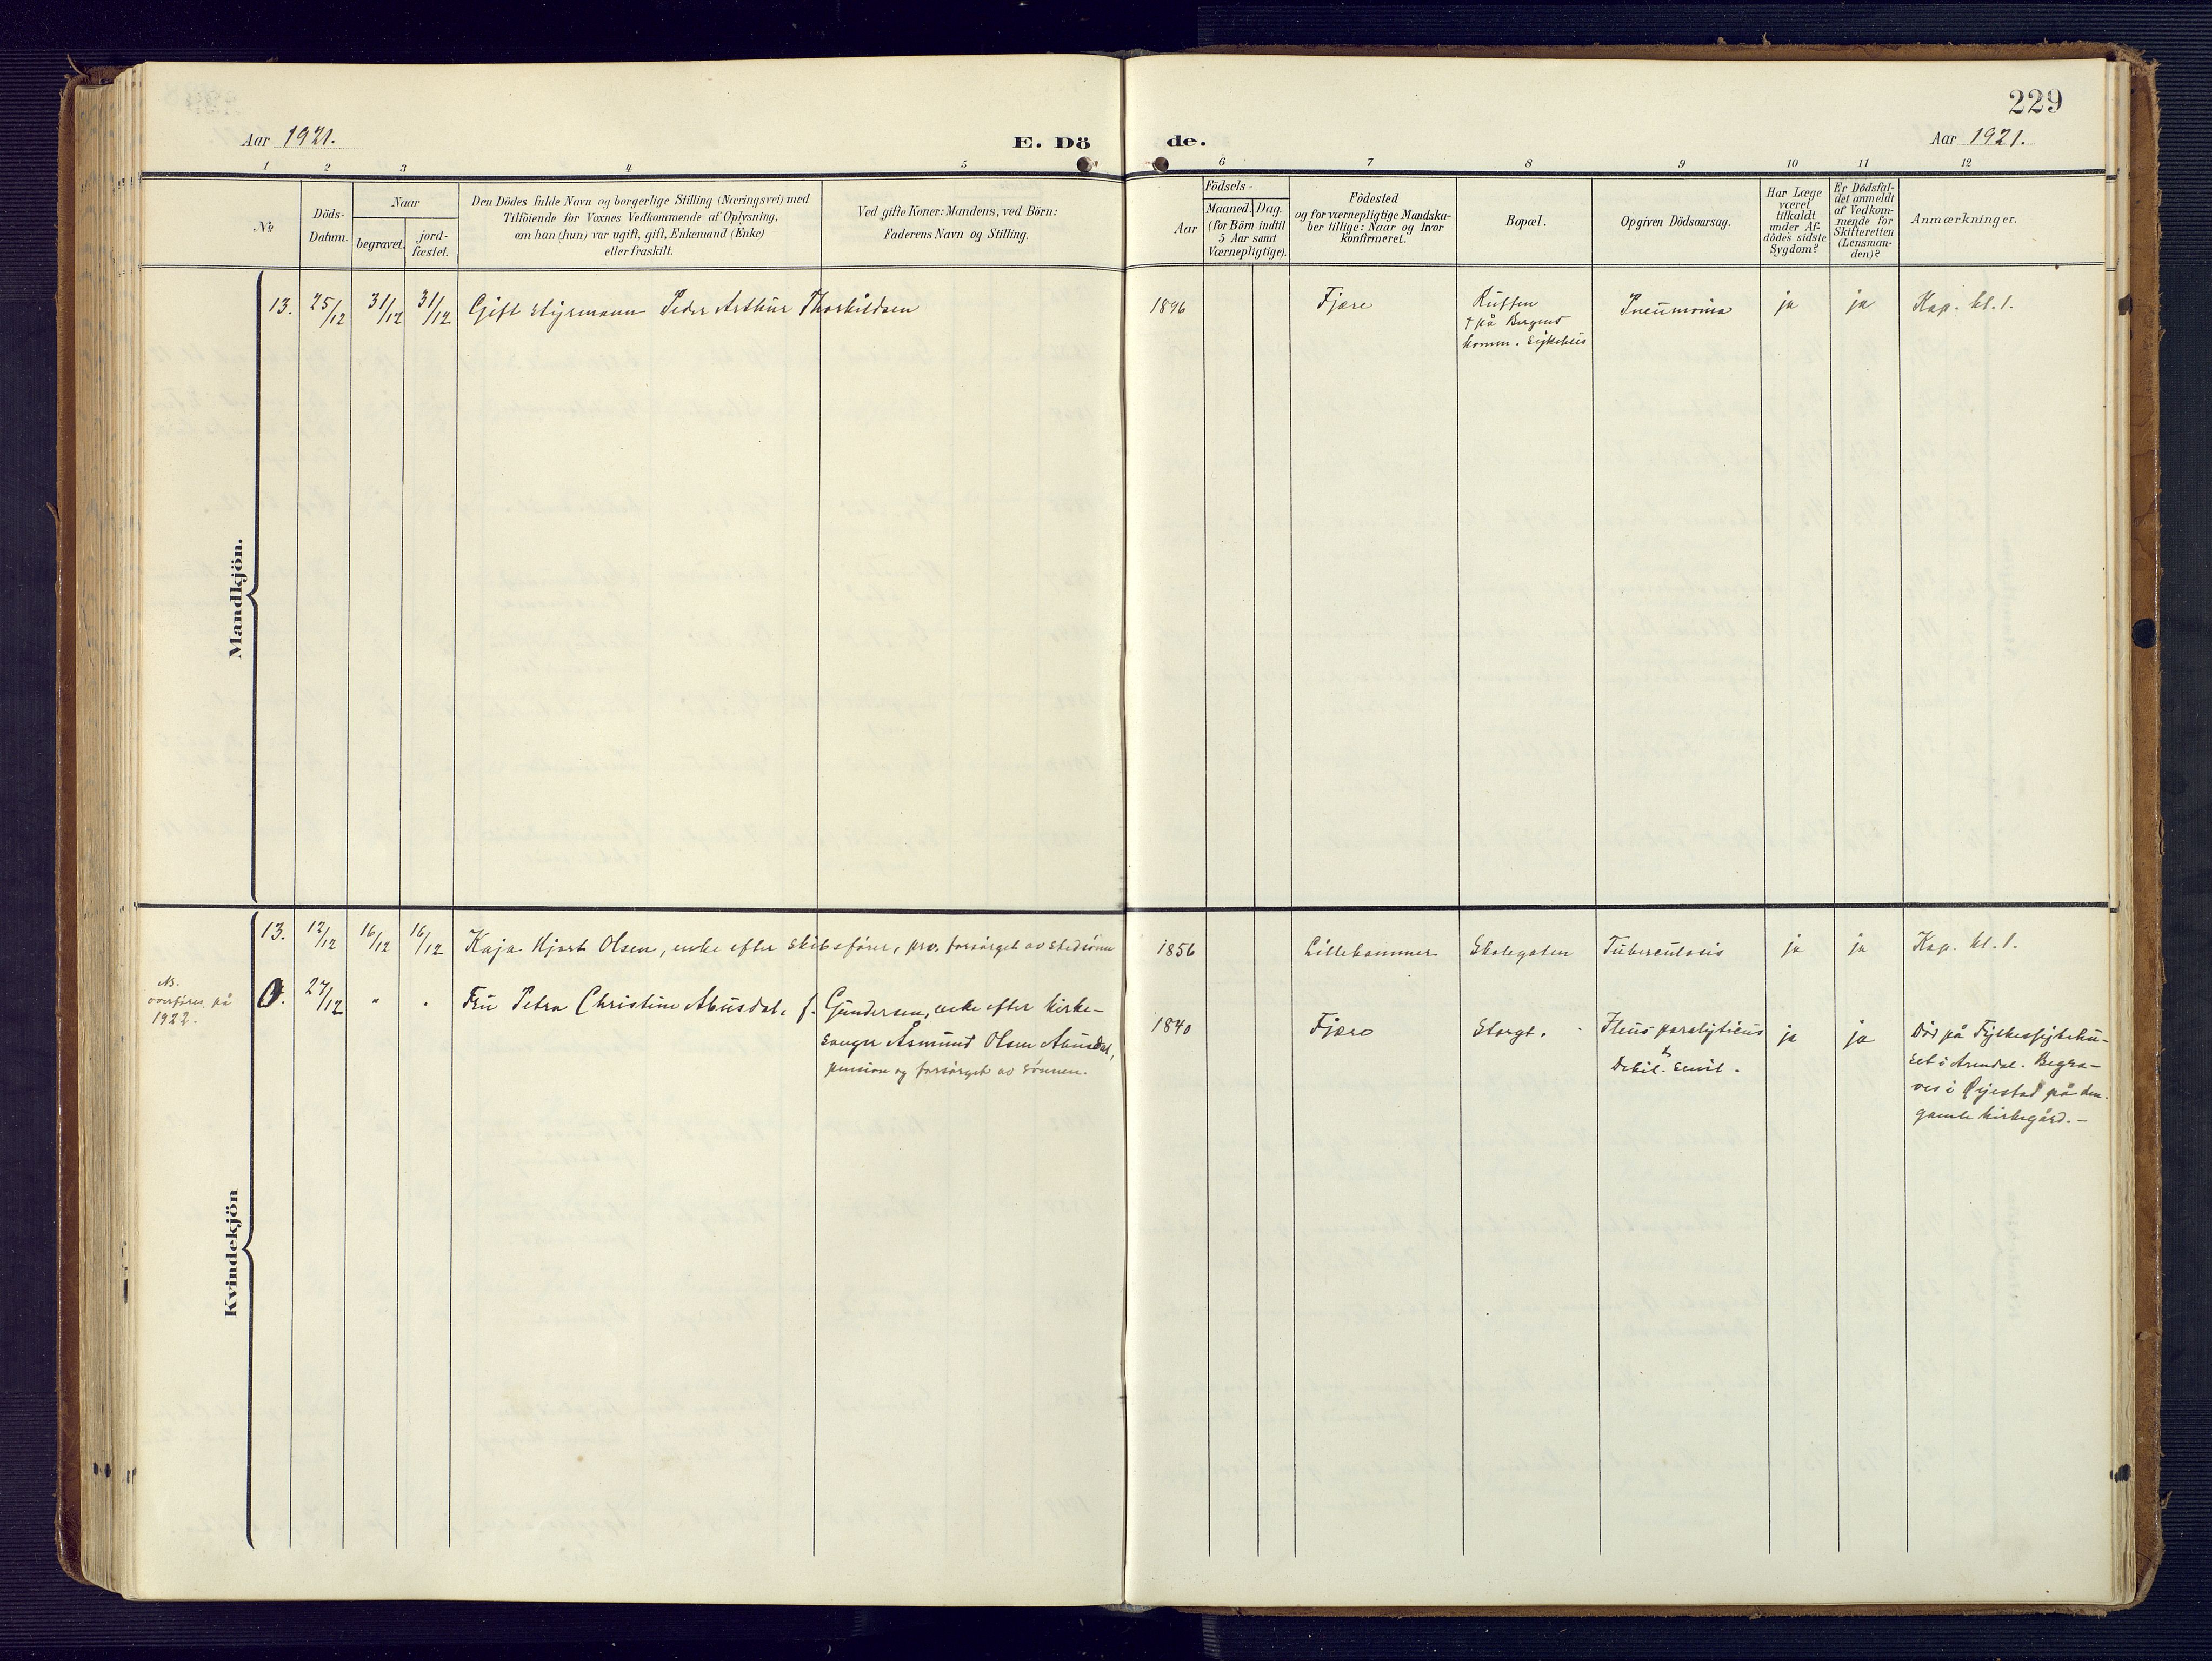 229
Aar 1921.
E. Dö de.
Aar 1921.
1 2 3 4 5 6 7 8 9 10 11 12
№
Döds-
Datum.
Naar
begravet.
jord-
fæstet.
Den Dödes fulde Navn og borgerlige Stilling (Næringsvei) med
Tilföiende for Voxnes Vedkommende af Oplysning,
om han (hun) var ugift, gift, Enkemand (Enke)
eller fraskilt.
Ved gifte Koner: Mandens, ved Börn:
Faderens Navn og Stilling.
Födsels-
Aar
Maaned. Dag.
(for Börn indtil
5 Aar samt
Værnepligtige).
Födested
og for værnepligtige Mandska-
ber tillige: Naar og hvor
konfirmeret.
Bopæl.
Opgiven Dödsaarsag.
Har Læge
været
tilkaldt
under Af-
dödes sidste
Sygdom?
Er Dödsfal-
det anmeldt
af Vedkom-
mende for
Skifteretten
(Lensman-
den)?
Anmærkninger.
Mandkjön.
13. 25/12 31/12 31/12 Gift styrmann Peder Arthur Thorkildsen 1896 Fjære
† på Bergens
komm. sykehus
Pneumonia ja ja Kap. kl. 1.
Kvindekjön
13. 12/12 16/12 16/12 Kaja Hjort Olsen, enke efter skibsfører, prv. forsørget av stedsønn 1856 Lillehammer Skolegaten Tuberculosis ja ja Kap. kl. 1.
NB.
overføres på
1922.
0. 27/12 " " Fru Petra Christine Abusdal, f. Gundersen, enke efter kirke-
sanger Åsmund Olsen Abusdal,
pension og forsørget av sønnen.
1840 Fjære Storgt. Ileus paralyticus
&
Debil. senil.
ja ja Død på Fylkessykehu-
set i Arendal. Begra-
ves i på den
gamle kirkegård. –